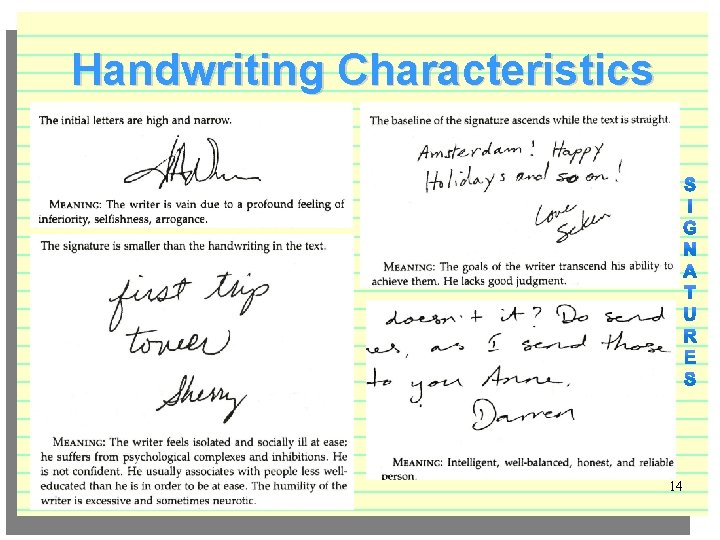 Handwriting Characteristics
The initial letters are high and narrow.
MEANING: The writer is vain due to a profound feeling of
inferiority, selfishness, arrogance.
The signature is smaller than the handwriting in the text.
first trip
Sherry
MEANING: The writer feels isolated and socially ill at ease;
he suffers from psychological complexes and inhibitions. He
is not confident. He usually associates with people less well-
educated than he is in order to be at ease. The humility of the
writer is excessive and sometimes neurotic.
The baseline of the signature ascends while the text is straight.
Amsterdam! Happy
Holidays and so on!
Love
MEANING: The goals of the writer transcend his ability to
achieve them. He lacks good judgment.
doesn't it? Do send
es, as I send those
to you Anne.
Darren
MEANING: Intelligent, well-balanced, honest, and reliable
person.
SIGNATURES
14